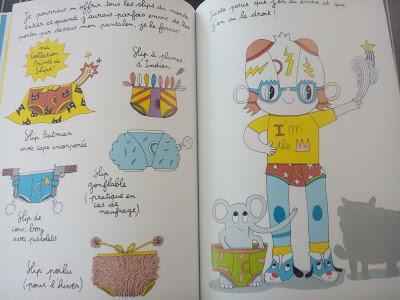 Je pourrais m'offrir tous les slips du monde
entier et quand j'aurais parfois envie de les
porter par dessus mon pantalon, je le ferais!
ma
Collection
Privée de
Slips!
Slip à plumes
d'Indien.
Slip Batman
avec cape incorporée
Slip
gonflable
(pratique en
cas de
naufrage)
Slip de
cow-boy
avec pistolets
Slip poilu
(pour l'hiver)
juste parce que j'en ai envie et que
j'en ai le droit!
I'm
the